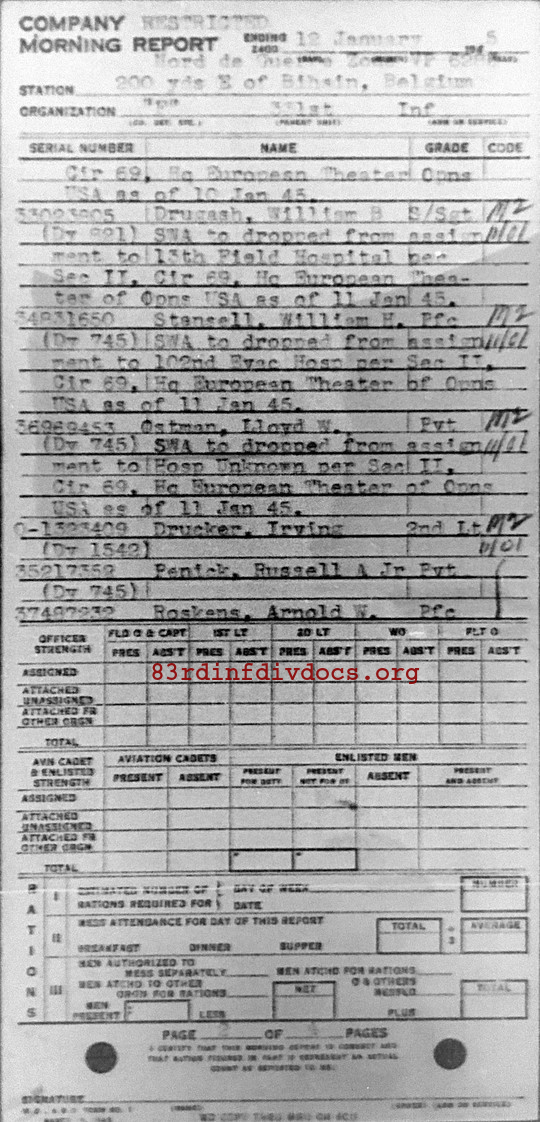 COMPANY RESTRICTED
MORNING REPORT ENDING 2400 12 January 194 5
Nord de Guerre Zone VP
STATION 200 yds E of Bihain, Belgium
ORGANIZATION 331st Inf
(CO. DET. ETC.) (PARENT UNIT) (ARM OR SERVICE)
SERIAL NUMBER NAME GRADE CODE
Cir 69, Hq European Theater Opns
USA as of 10 Jan 45.
33023905 Drugash, William B S/Sgt M2
(Dy 821) SWA to dropped from assign 11/01
ment to 13th Field Hospital per
Sec II, Cir 69, Hq European Thea-
ter of Opns USA as of 11 Jan 45.
34831650 Stansell, William H. Pfc M2
(Dy 745) SWA to dropped from assign 11/01
ment to 102nd Evac Hosp per Sec II,
Cir 69, Hq European Theater of Opns
USA as of 11 Jan 45.
36969453 Ostman, Lloyd W. Pvt M2
(Dy 745) SWA to dropped from assign 11/01
ment to Hosp Unknown per Sec II,
Cir 69, Hq European Theater of Opns
USA as of 11 Jan 45.
O-1323409 Drucker, Irving 2nd Lt M2
(Dy 1542) 11/01
35217352 Penick, Russell A Jr Pvt
(Dy 745)
37497232 Roskens, Arnold W. Pfc
OFFICER STRENGTH FLD O & CAPT 1ST LT 2D LT WO FLT O
PRES ABS'T PRES ABS'T PRES ABS'T PRES ABS'T PRES ABS'T
83rdinfdivdocs.org
ASSIGNED
ATTACHED UNASSIGNED
ATTACHED FR OTHER ORGN
TOTAL
AVN CADET & ENLISTED STRENGTH AVIATION CADETS ENLISTED MEN
PRESENT ABSENT PRESENT FOR DUTY PRESENT NOT FOR DY ABSENT PRESENT AND ABSENT
ASSIGNED
ATTACHED UNASSIGNED
ATTACHED FR OTHER ORGN
TOTAL
RATIONS
I ESTIMATED NUMBER OF RATIONS REQUIRED FOR DAY OF WEEK DATE NUMBER
II MESS ATTENDANCE FOR DAY OF THIS REPORT TOTAL ÷ 3 AVERAGE
BREAKFAST DINNER SUPPER
III MEN AUTHORIZED TO MESS SEPARATELY MEN ATCHD FOR RATIONS
MEN ATCHD TO OTHER ORGN FOR RATIONS NET O & OTHERS MESSED TOTAL
MEN PRESENT LESS PLUS
PAGE OF PAGES
I CERTIFY THAT THIS MORNING REPORT IS CORRECT AND
SIGNATURE